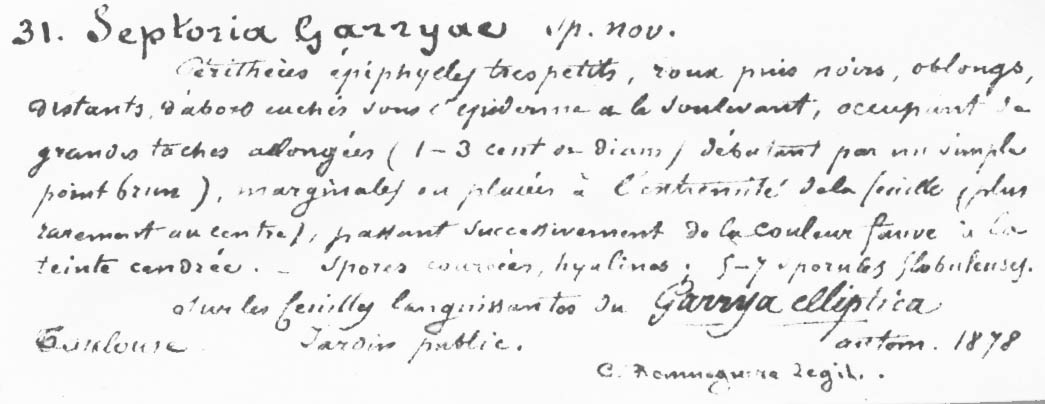 31. Septoria Garryae sp. nov.
Périthèces épiphylles très petits, roux puis noirs, oblongs,
distants, d'abord cachés sous l'épiderme le soulevant, occupant de
grandes taches allongées (1-3 cent de diam / débutant par un simple
point brun), marginales ou placées à l'extrémité de la feuille (plus
rarement au centre), passant successivement de la couleur fauve à la
teinte cendrée. _ Spores courbées, hyalines; 5-7 sporules globuleuses.
Sur les feuilles languissantes du Garrya elliptica
Toulouse Jardin public. autom. 1878
C. Roumeguère legit.